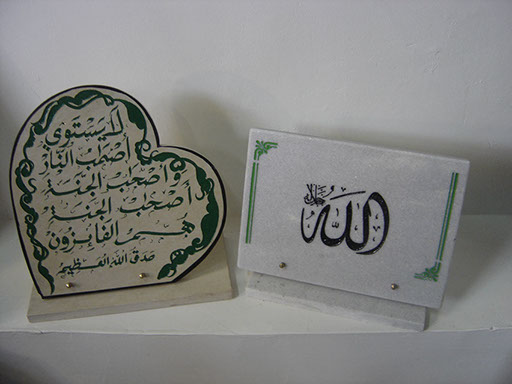 لَا يَسْتَوِي
أَصْحَٰبُ النَّارِ
وَأَصْحَٰبُ الْجَنَّةِ
أَصْحَٰبُ الْجَنَّةِ
هُمُ الْفَائِزُونَ
صَدَقَ اللهُ الْعَظِيمُ
الله